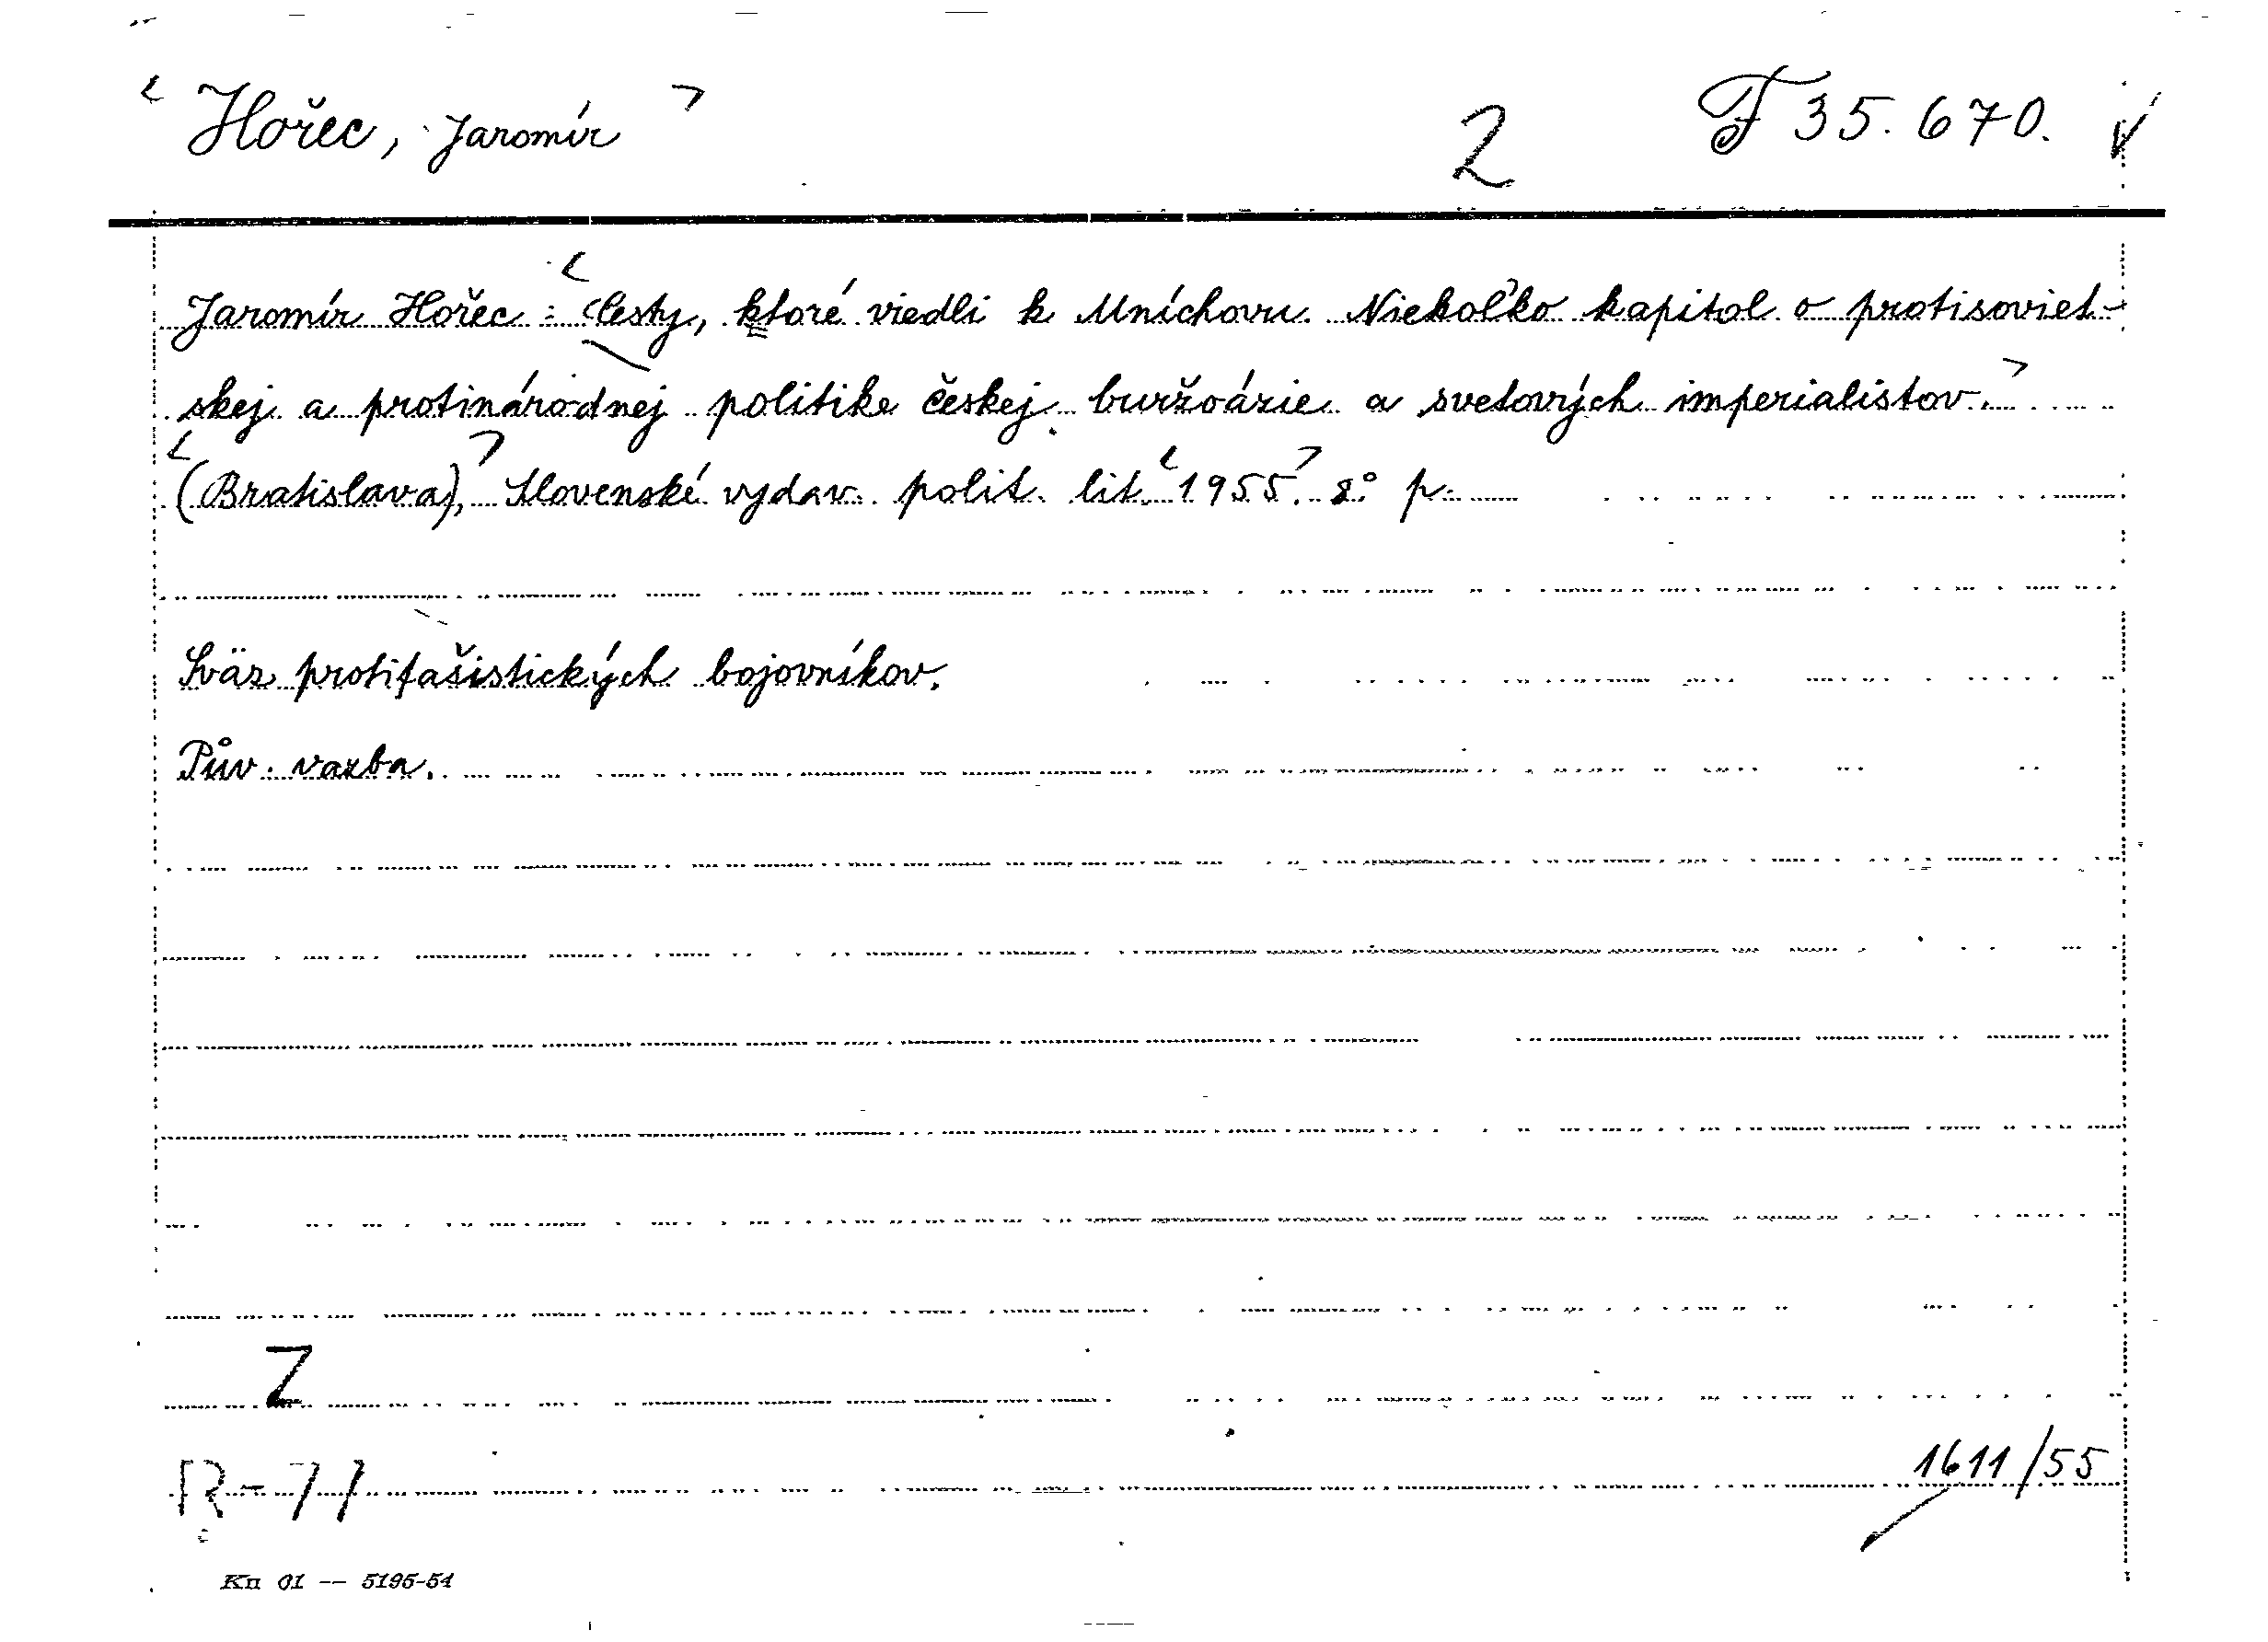 Hořec, Jaromír 2 F 35.670. ✓
Jaromír Hořec: Cesty, ktoré viedli k Mníchovu. Niekoľko kapitol o protisoviet-
skej a protinárodnej politike českej buržoázie a svetových imperialistov.
(Bratislava), Slovenské vydav. polit. lit. 1955. 8° p.
Sväz protifašistických bojovníkov.
Pův. vazba.
Z
R-77 1611/55
Kn 01 -- 5195-54